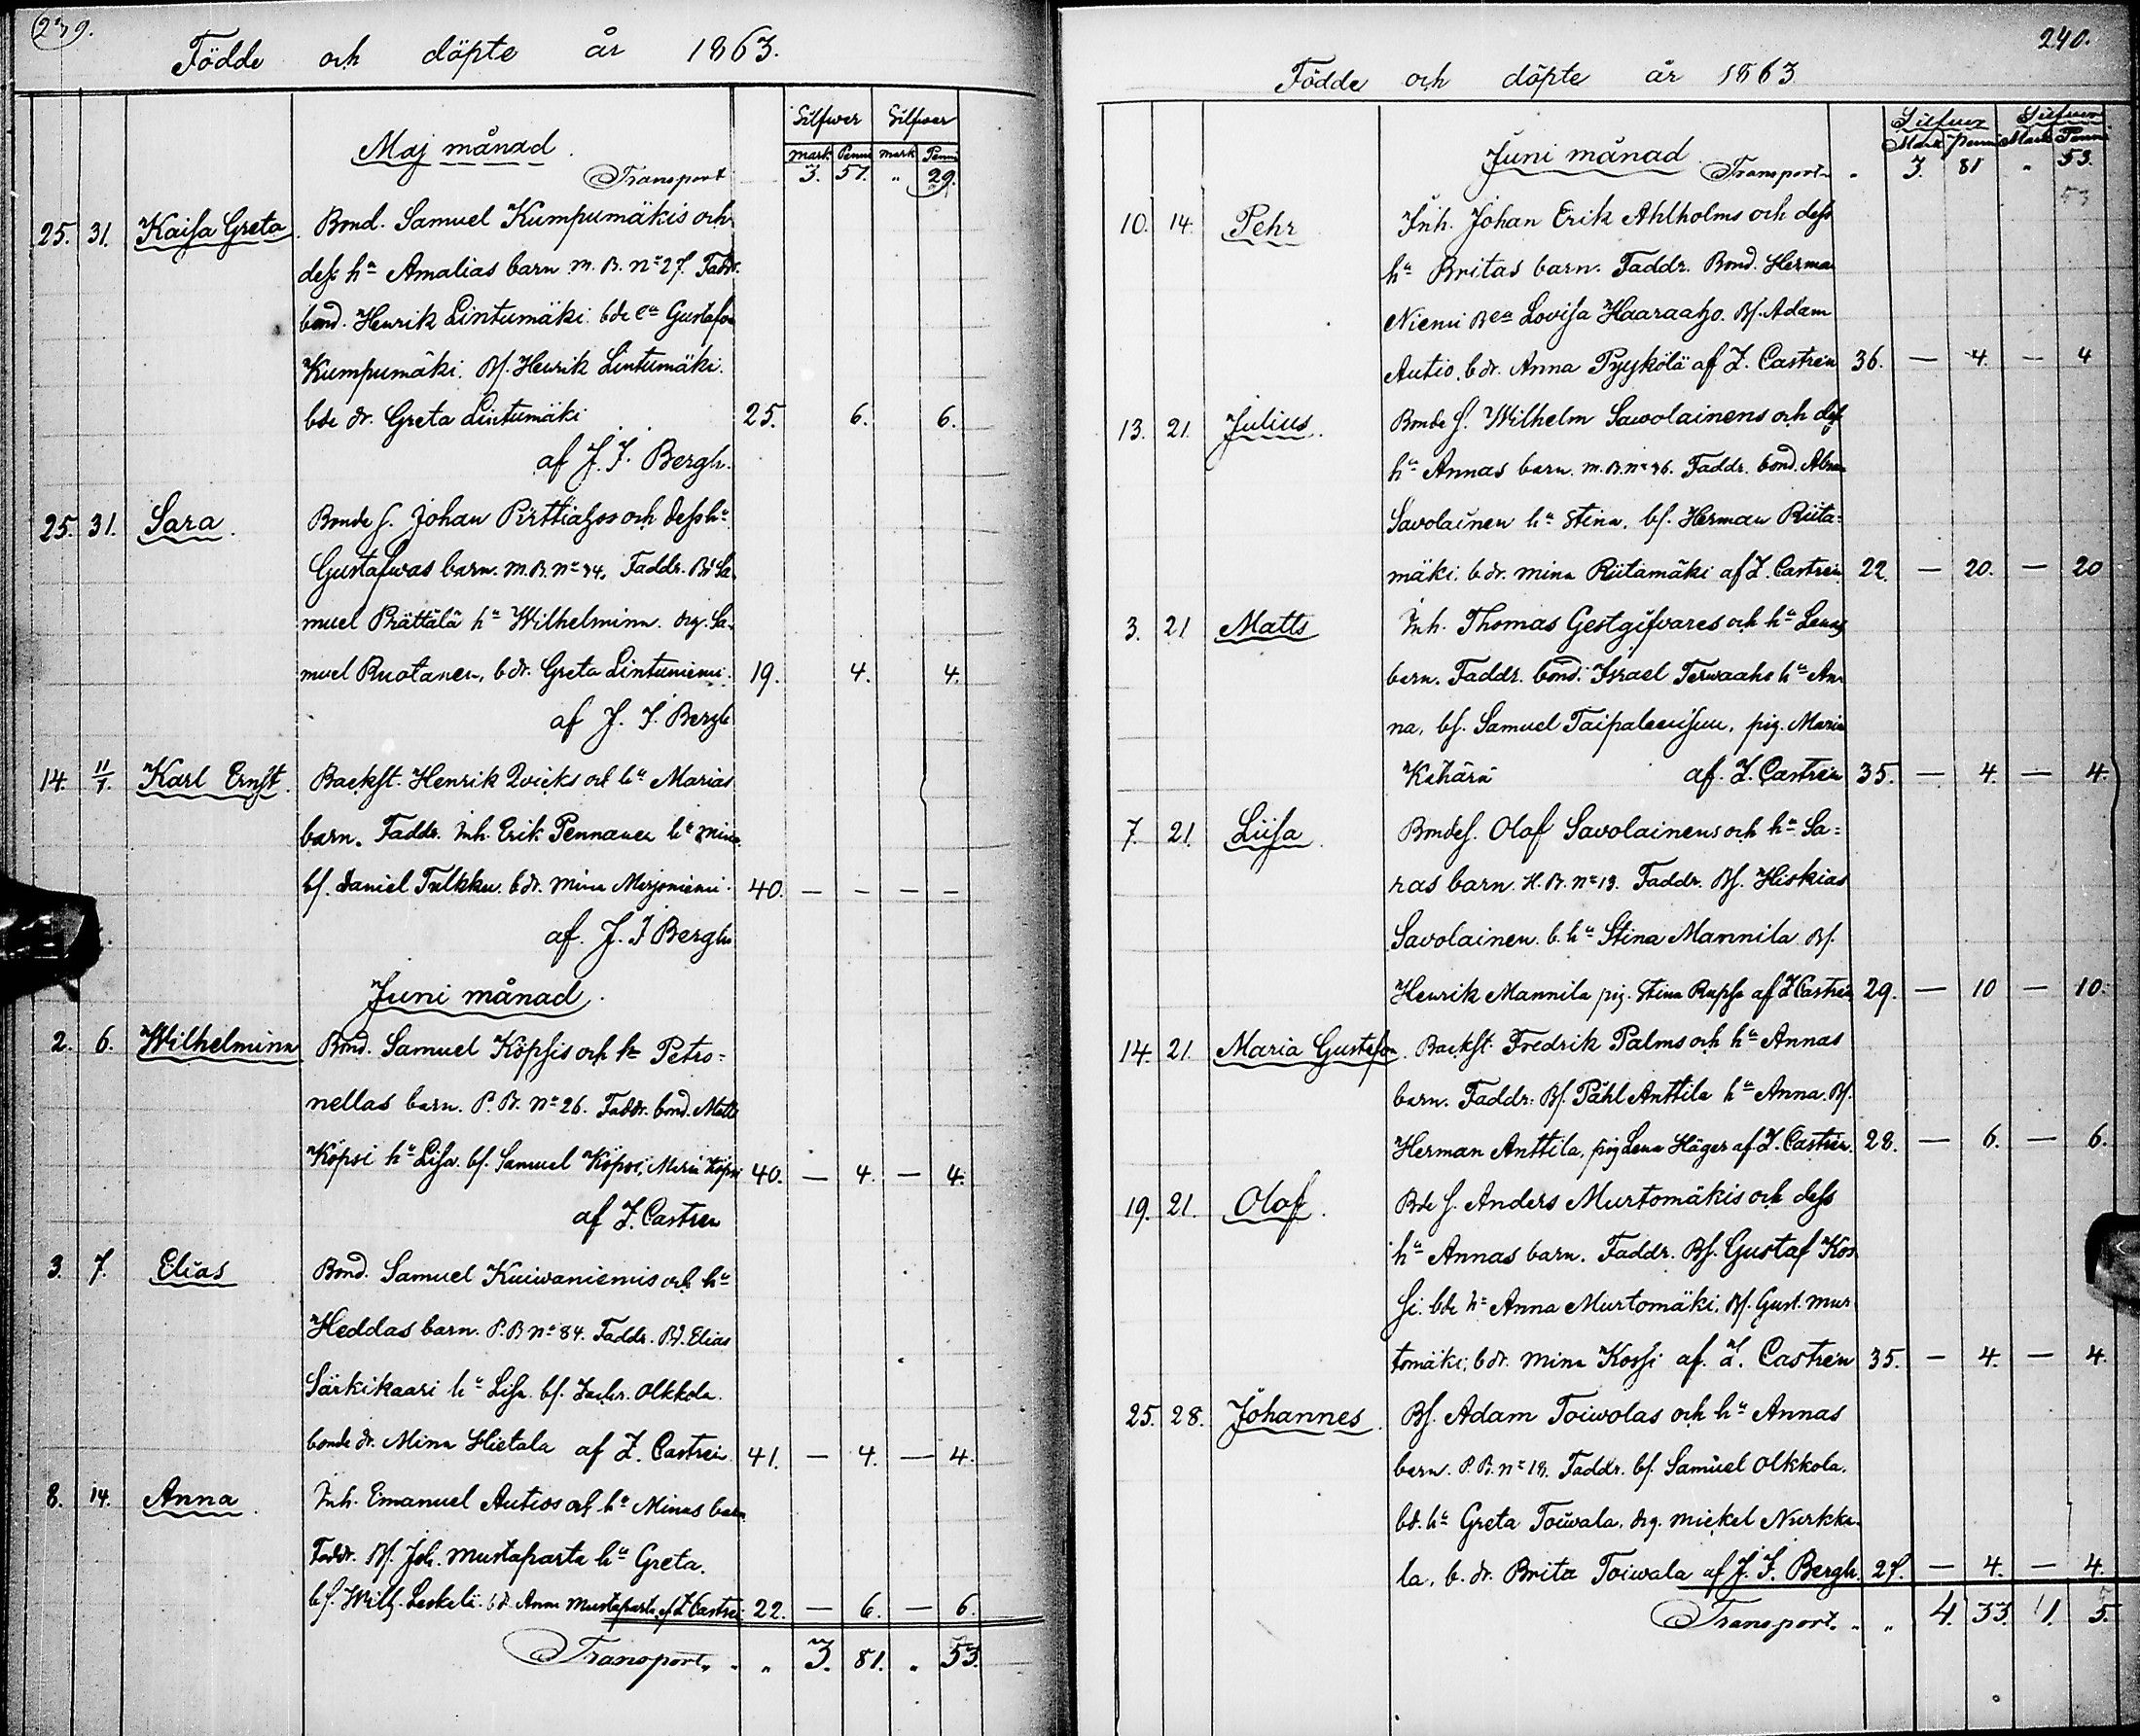 239.
Födde och döpte år 1863.
Silfwer Silfwer
Maj månad. mark. Penni mark Penni
Transport 3. 57. " 29.
25. 31. Kaisa Greta. Bond. Samuel Kumpumäkis och
dess hu Amalias barn M. B. No 27. Faddr.
bond. Henrik Lintumäki. bde ea Gustafva
Kumpumäki. Bs. Henrik Lintumäki.
bde dr. Greta Lintumäki 25. 6. 6.
af J. F. Bergh.
25. 31. Sara. Bonde s. Johan Pirttiahos och dess hu
Gustafwas barn. M. B. No 34. Faddr. Bd Sa-
muel Prättälä hu Wilhelmina. drg. Sa-
muel Ruotanen, bdr. Greta Lintuniemi. 19. 4. 4.
af J. F. Bergh
14. 11/7. Karl Ernst. Backst. Henrik Qvicks och hu Marias
barn. Faddr. Inh. Erik Pennanen hu Mina
bs. Daniel Tulkku. bdr. Mina Merjoniemi. 40. — — — —
af. J. F Bergh
Juni månad.
2. 6. Wilhelmina Bond. Samuel Köpsis och hu Petro=
nellas barn. P. B. No 26. Faddr. bond. Matts
Köpsi hu Lisa. bs. Samuel Köpsi, Maria Köpsi 40. — 4. — 4.
af Z. Castren
3. 7. Elias Bond. Samuel Kuiwaniemis och hu
Heddas barn. P. B No 84. Faddr. Bd. Elias
Särkikaari hu Lisa. bs. Zachr. Olkkola.
bonde dr. Mina Hietala af Z. Castren. 41. — 4. — 4.
8. 14. Anna. Inh. Emanuel Autios och hu Minas barn
Faddr. Bs. Joh. Mustaparta hu Greta.
bs. Wilh. Leskelä. bd. Anna Mustaparta af Z Castren 22. — 6. — 6.
Transport. " 3. 81. " 53.
240.
Födde och döpte år 1863
Silfwer Silfwer
Juni månad Mark Penni Mark Penni
Transport " 3. 81 " 53.
53
10. 14. Pehr Inh. Johan Erik Ahlholms och dess
hu Britas barn. Faddr. Bond. Herman
Niemi Bea Lovisa Haaraaho. Bs. Adam
Autio. bdr. Anna Pyykölä af Z. Castrén 36. — 4. — 4
13. 21. Julius. Bonde s. Wilhelm Sawolainens och dess
hu Annas barn. M. B. No 36. Faddr. bond. Abram
Savolainen hu Stina. bs. Herman Riita=
mäki. bdr. Mina Riitamäki af Z. Castrén 22. — 20. — 20
3. 21 Matts Inh. Thomas Gestgifvares och hu Lenas
barn. Faddr. bond. Israel Terwaaho hu An-
na, bs. Samuel Taipaleenssuu, pig. Maria
Kihärä af. Z. Castrén 35. — 4. — 4.
7. 21. Liisa. Bondes. Olof Savolainens och hu Sa=
ras barn. H. B. No 13. Faddr. Bs. Hiskias
Savolainen. b. hu Stina Mannila Bs.
Henrik Mannila pig. Stina Rupsa af Z Castrén 29. — 10 — 10.
14. 21. Maria Gustafva. Backst. Fredrik Palms och hu Annas
barn. Faddr. Bs. Påhl Anttila hu Anna. Bs.
Herman Anttila, pig Lena Häger af. Z. Castrén. 28. — 6. — 6.
19. 21. Olof. Bde s. Anders Murtomäkis och dess
hu Annas barn. Faddr. Bs. Gustaf Kos
si. bde hu Anna Murtomäki, Bs. Gust. Mur
tomäki; bdr. Mina Kossi af. Z. Castrén 35. — 4. — 4.
25. 28. Johannes. Bs. Adam Toiwolas och hu Annas
barn. P. B. No 18. Faddr. bs. Samuel Olkkola.
bd. hu Greta Toiwala. drg. Mickel Nurkka-
la, b. dr. Brita Toiwala af J. F. Bergh. 27. — 4. — 4.
Transport. " " 4. 33. 1. 5.